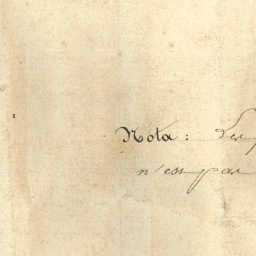 Nota :
n'est pas